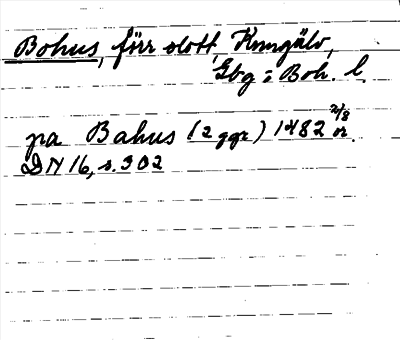 Bohus, förr slott, Kungälv,
Gbg o Boh. l.
pa Bahus (2 ggr) 1482 2/8 or.
DN 16, s. 302